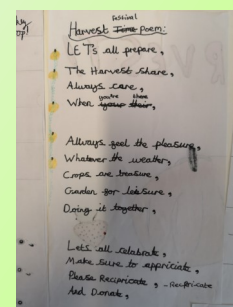 Festival
Harvest Time Poem:
LETs all prepare,
The Harvest Share,
Always care,
you're there
When your their,
Allways feel the pleasure,
Whatover the weather,
Crops are treasure,
Garden for leisure,
Doing it together,
Lets all celabrate,
Make Sure to appriciate,
Please Recipricate, - Recipricate
And Donate,